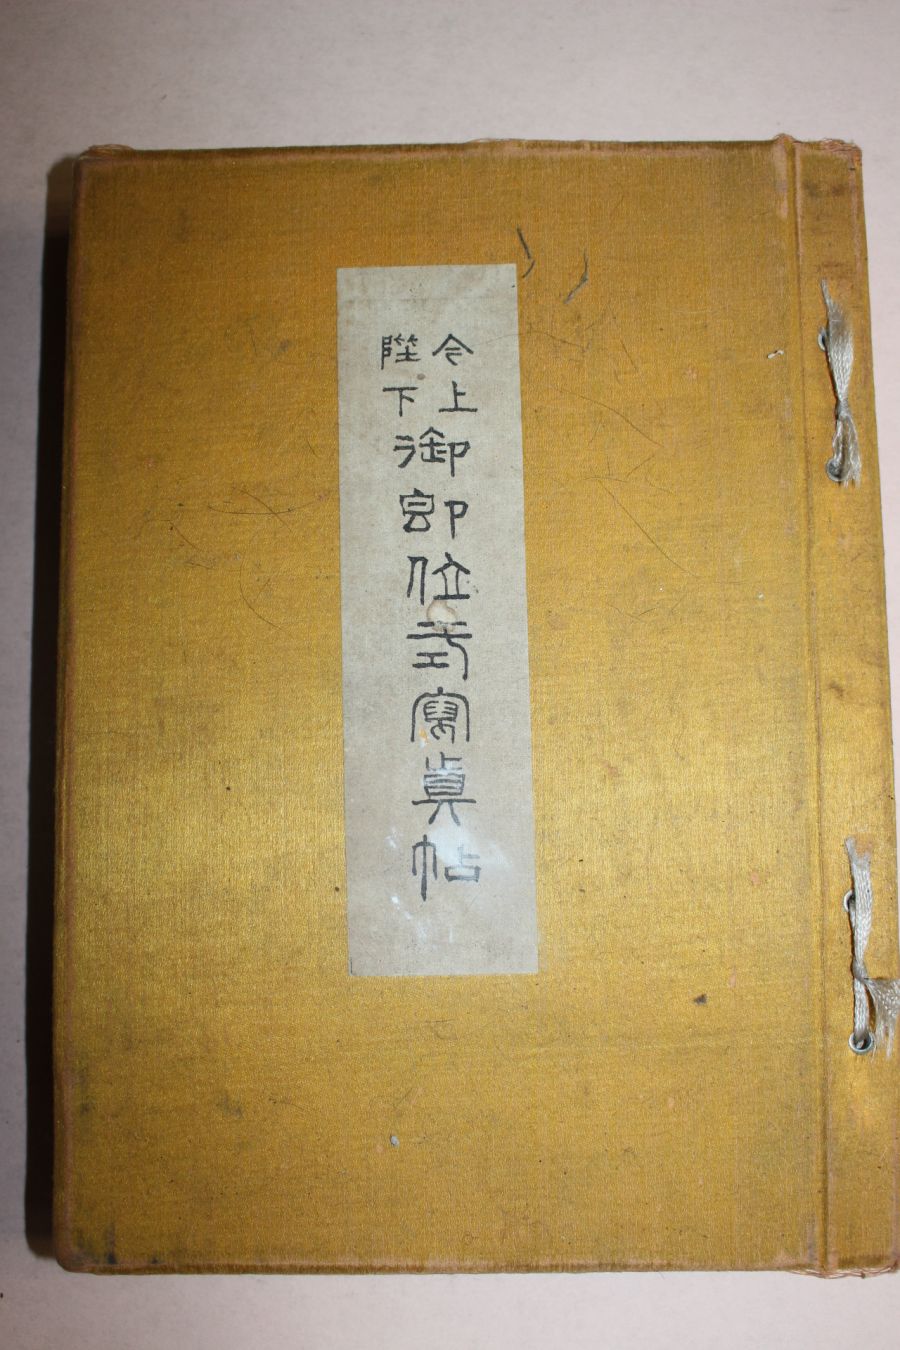 今上
陛下
御卽位式寫眞帖